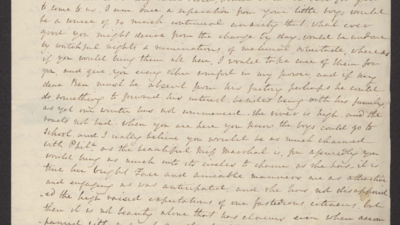 to come to us, I am sure a separation from your little boys would
be a source of so much continual anxiety that what ever
good you might derive from the change by day, would be undone
by watchful nights & ruminations of maternal solicitude, whereas
if you would bring them all here, I would to be ease of them for
you and give you every other comfort in my power, and if my
dear must be absent from his factory perhaps he could
do something to forward his interest besides being with his family,
as yet our winter has not commenced the river is high, and the
roads not bad when you are here you know the boys could go to
school and I really believe you would be as much charmed
with Phila as the beautiful Miss Marshal is, for assuredly you
would bring as much into its circles to charm as she has, it is
true her bright Face and amiable manners are as attractive
and engaging as was anticipated, and she has not disappoint
ed the high raised expectations of our fastidious citizens, but
then it is not beauty alone that has charms even when accom
panied with